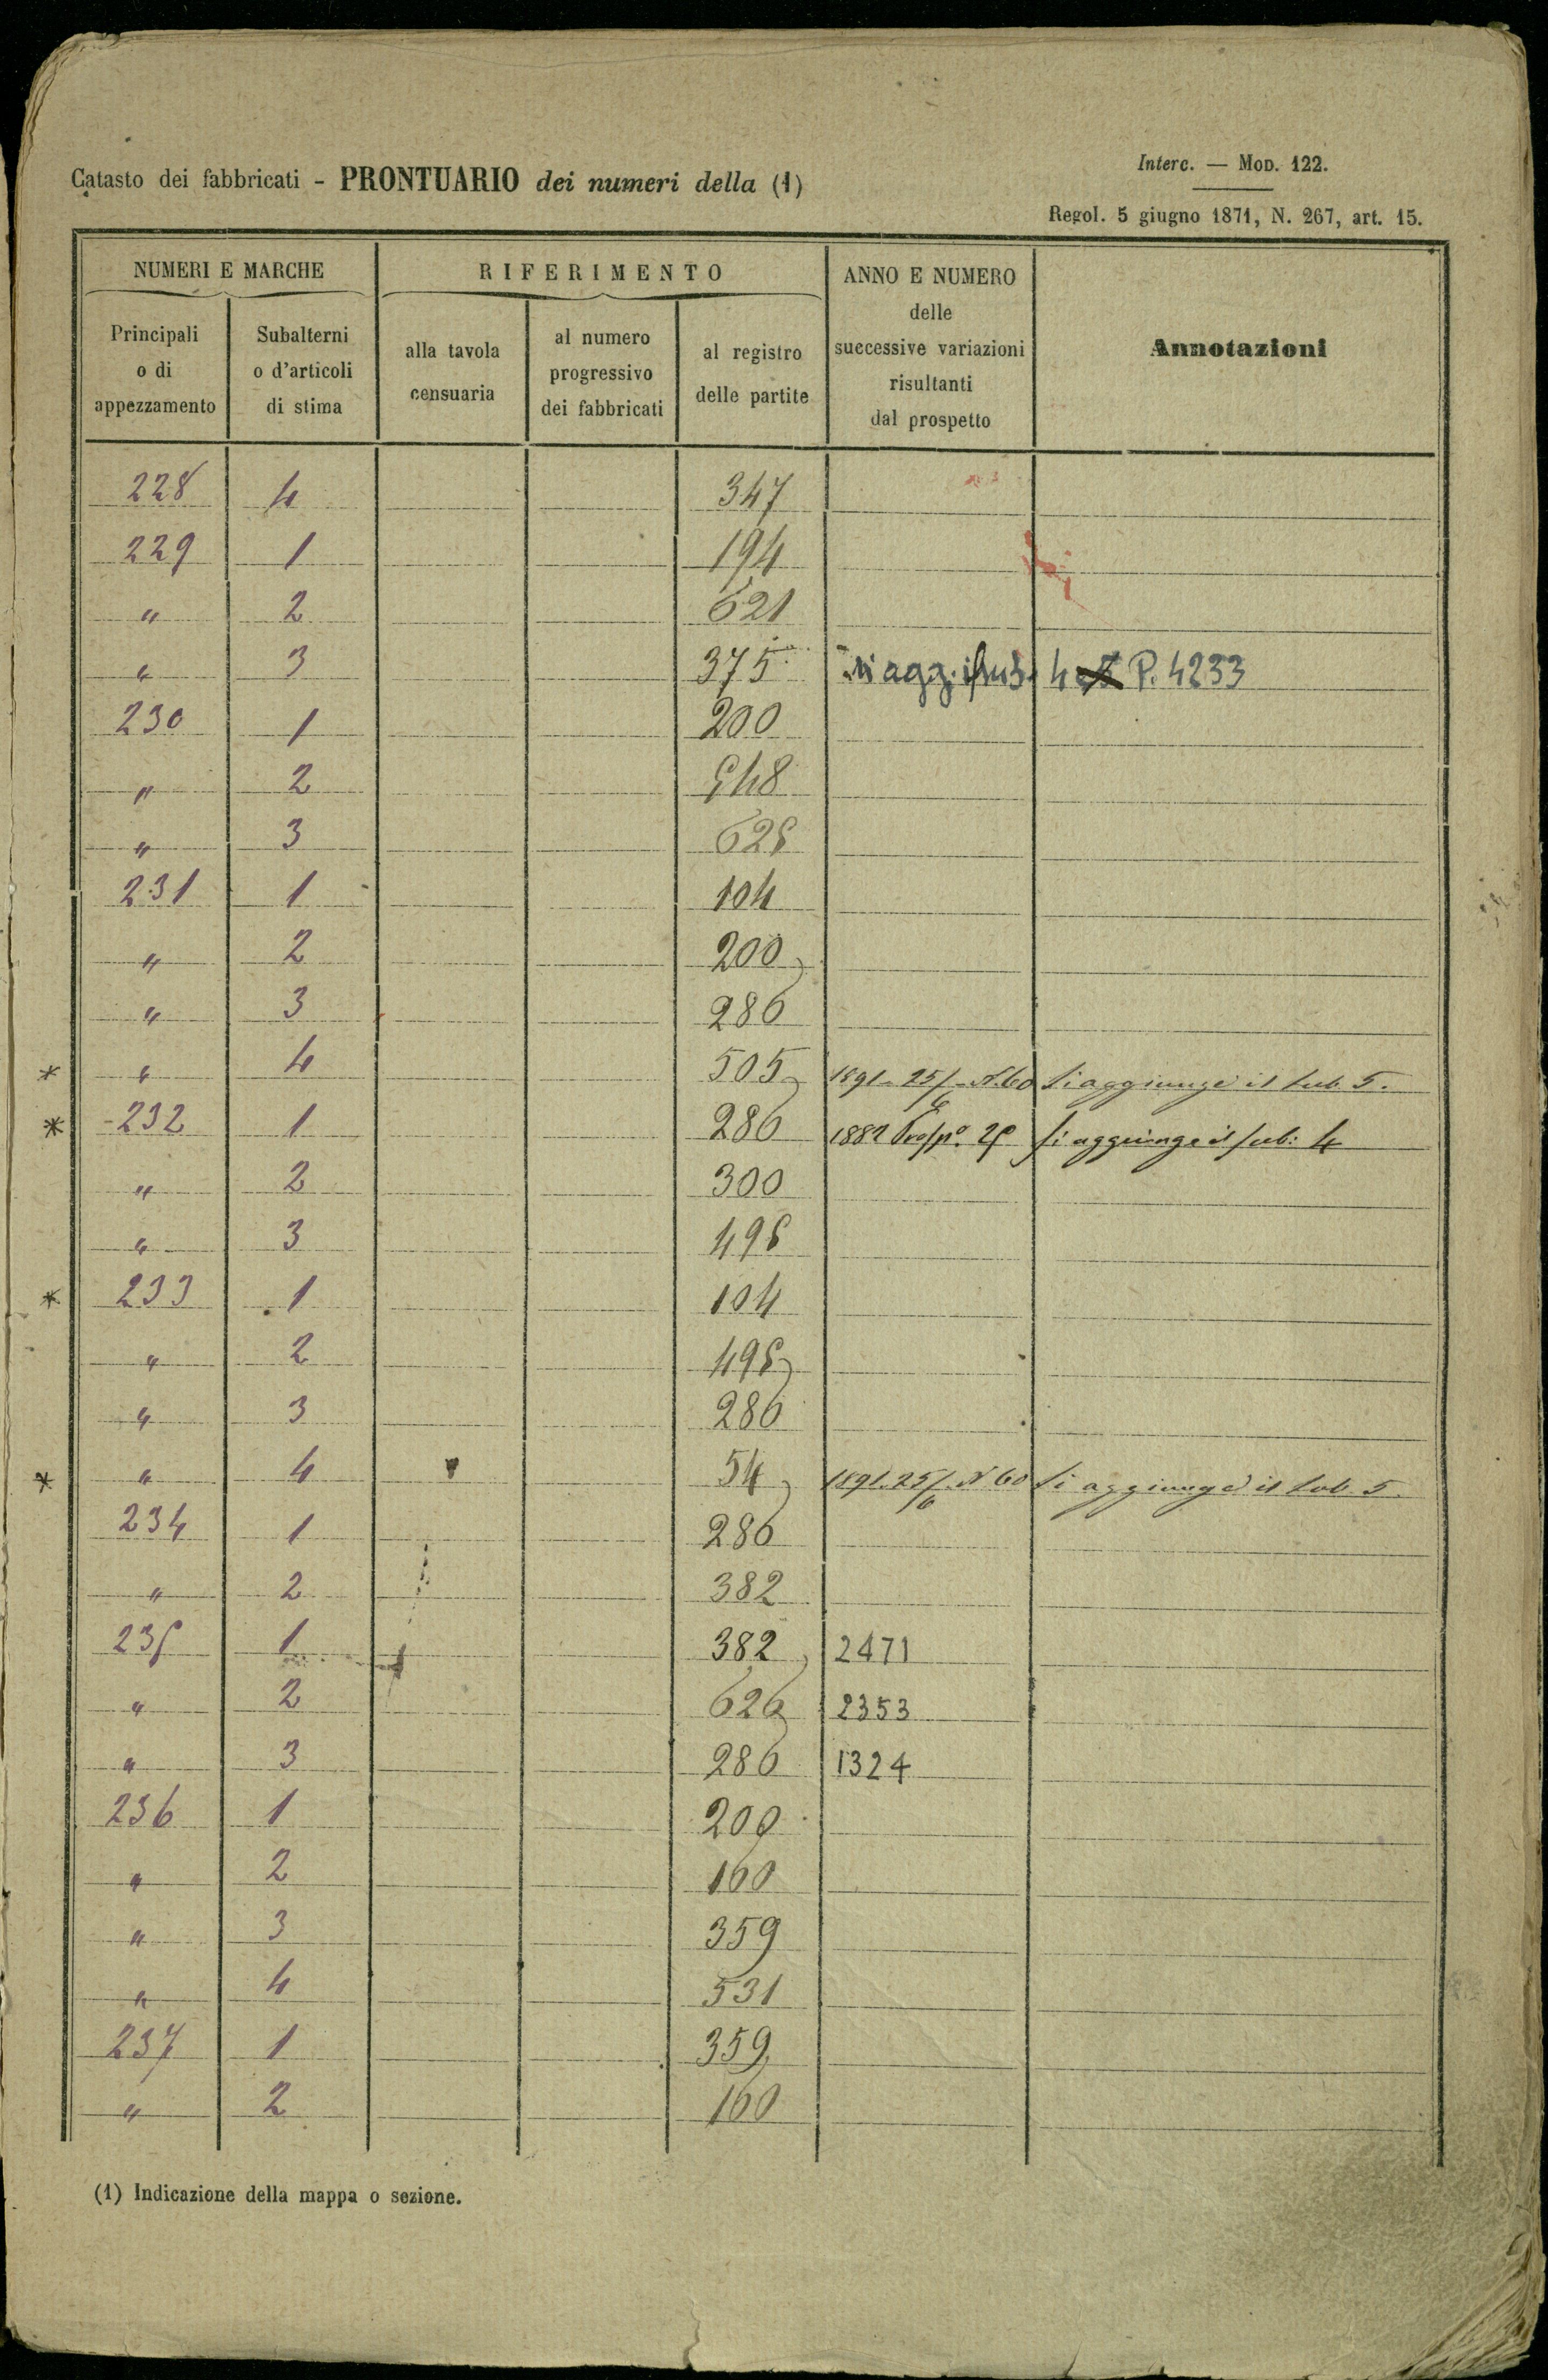 Catasto dei fabbricati - PRONTUARIO dei numeri della (1)
Interc. — Mod. 122.
Regol. 5 giugno 1871, N. 267, art. 15.
NUMERI E MARCHE
RIFERIMENTO
ANNO E NUMERO
delle
successive variazioni
risultanti
dal prospetto
Annotazioni
Principali
o di
appezzamento
Subalterni
o d'articoli
di stima
alla tavola
censuaria
al numero
progressivo
dei fabbricati
al registro
delle partite
228 4 347
229 1 194
" 2 621
" 3 375 si agg. il sub. 4 P. 4233
230 1 200
" 2 548
" 3 625
231 1 104
" 2 200
" 3 286
* " 4 505 1891 - 25/6 - N. 60 Si aggiunge il sub. 5.
* 232 1 286 1882 Prosp.o 25 Si aggiunge il sub: 4
" 2 300
" 3 495
* 233 1 104
" 2 495
" 3 286
* " 4 54 1891. 25/6. N 60 Si aggiunge il sub. 5.
234 1 286
" 2 382
235 1 382 2471
" 2 626 2353
" 3 286 1324
236 1 200
" 2 160
" 3 359
" 4 531
237 1 359
" 2 160
(1) Indicazione della mappa o sezione.